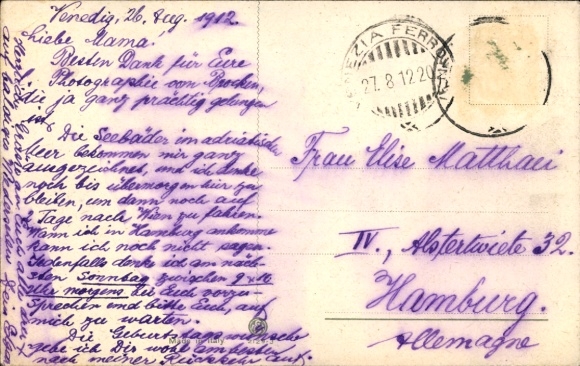 Venedig, 26. Aug. 1912.
Liebe Mama!
Besten Dank für Eure
Photographie vom Brocken,
die ja ganz prächtig gelungen
ist.
Die Seebäder im adriatischen
Meer bekommen mir ganz
ausgezeichnet, und ich denke
noch bis übermorgen hier zu
bleiben, um dann noch auf
Tage nach Wien zu fahren.
Wann ich in Hamburg ankomme
kann ich noch nicht sagen.
Jedenfalls denke ich am näch-
sten Sonntag zwischen 9 u. 10
Uhr morgens bei Euch vorzu-
sprechen und bitte Euch, auf
mich zu warten.
Die Geburtstagswünsche
gebe ich Dir wohl am besten
nach meiner Rückkehr auf.
Herzliche Grüsse und
auf baldiges Wiedersehen Dein
VENEZIA FERROVIA
27.8.12 20
Frau Elise Matthaei
IV., Alstertwiete 32.
Hamburg.
Allemagne
Made in Italy